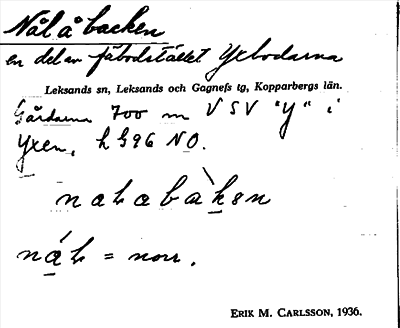 Nålåbacken
en del av fäbodstället Yxbodarna
Leksands sn, Leksands och Gagnefs tg, Kopparbergs län.
Gårdarna 700 m VSV "Y" i
Yxen, h 596 NO.
nalabàken
nál = norr.
ERIK M. CARLSSON, 1936.